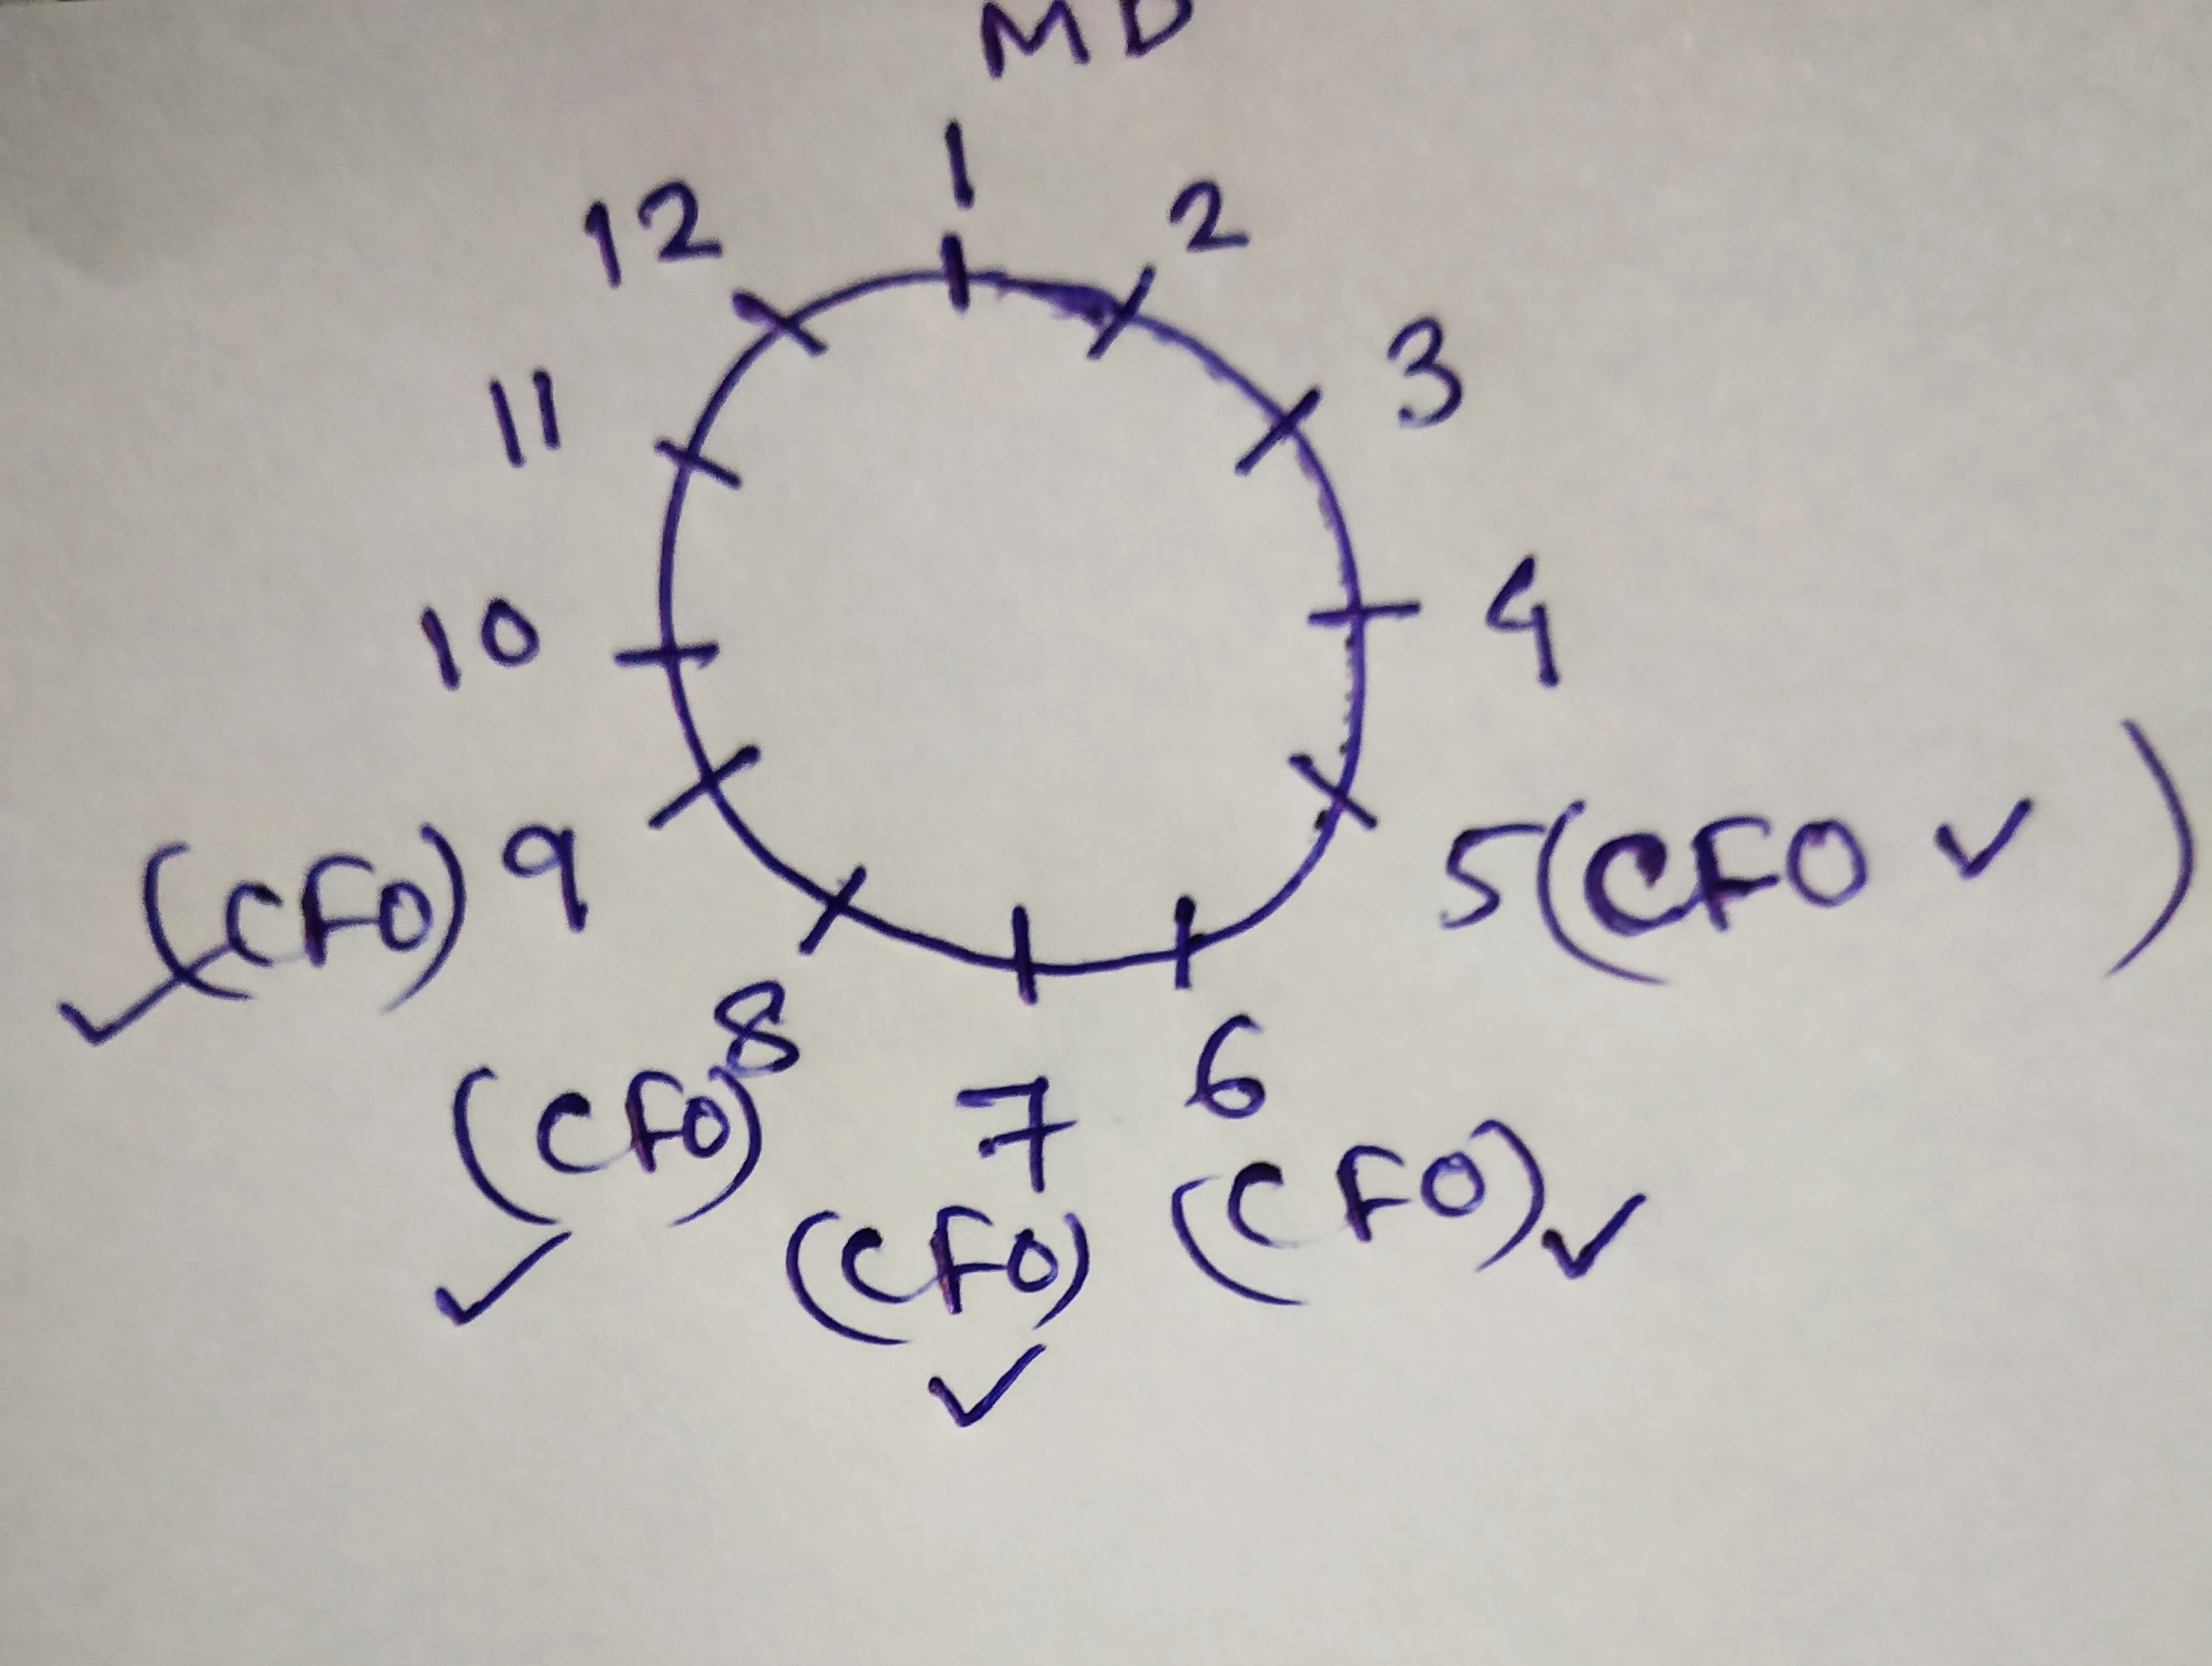 MD
1
12
2
11
3
10
4
(CFO) 9
5 (CFO ✓)
✓
8
6
(CFO)
7
(CFO) ✓
✓
(CFO)
✓